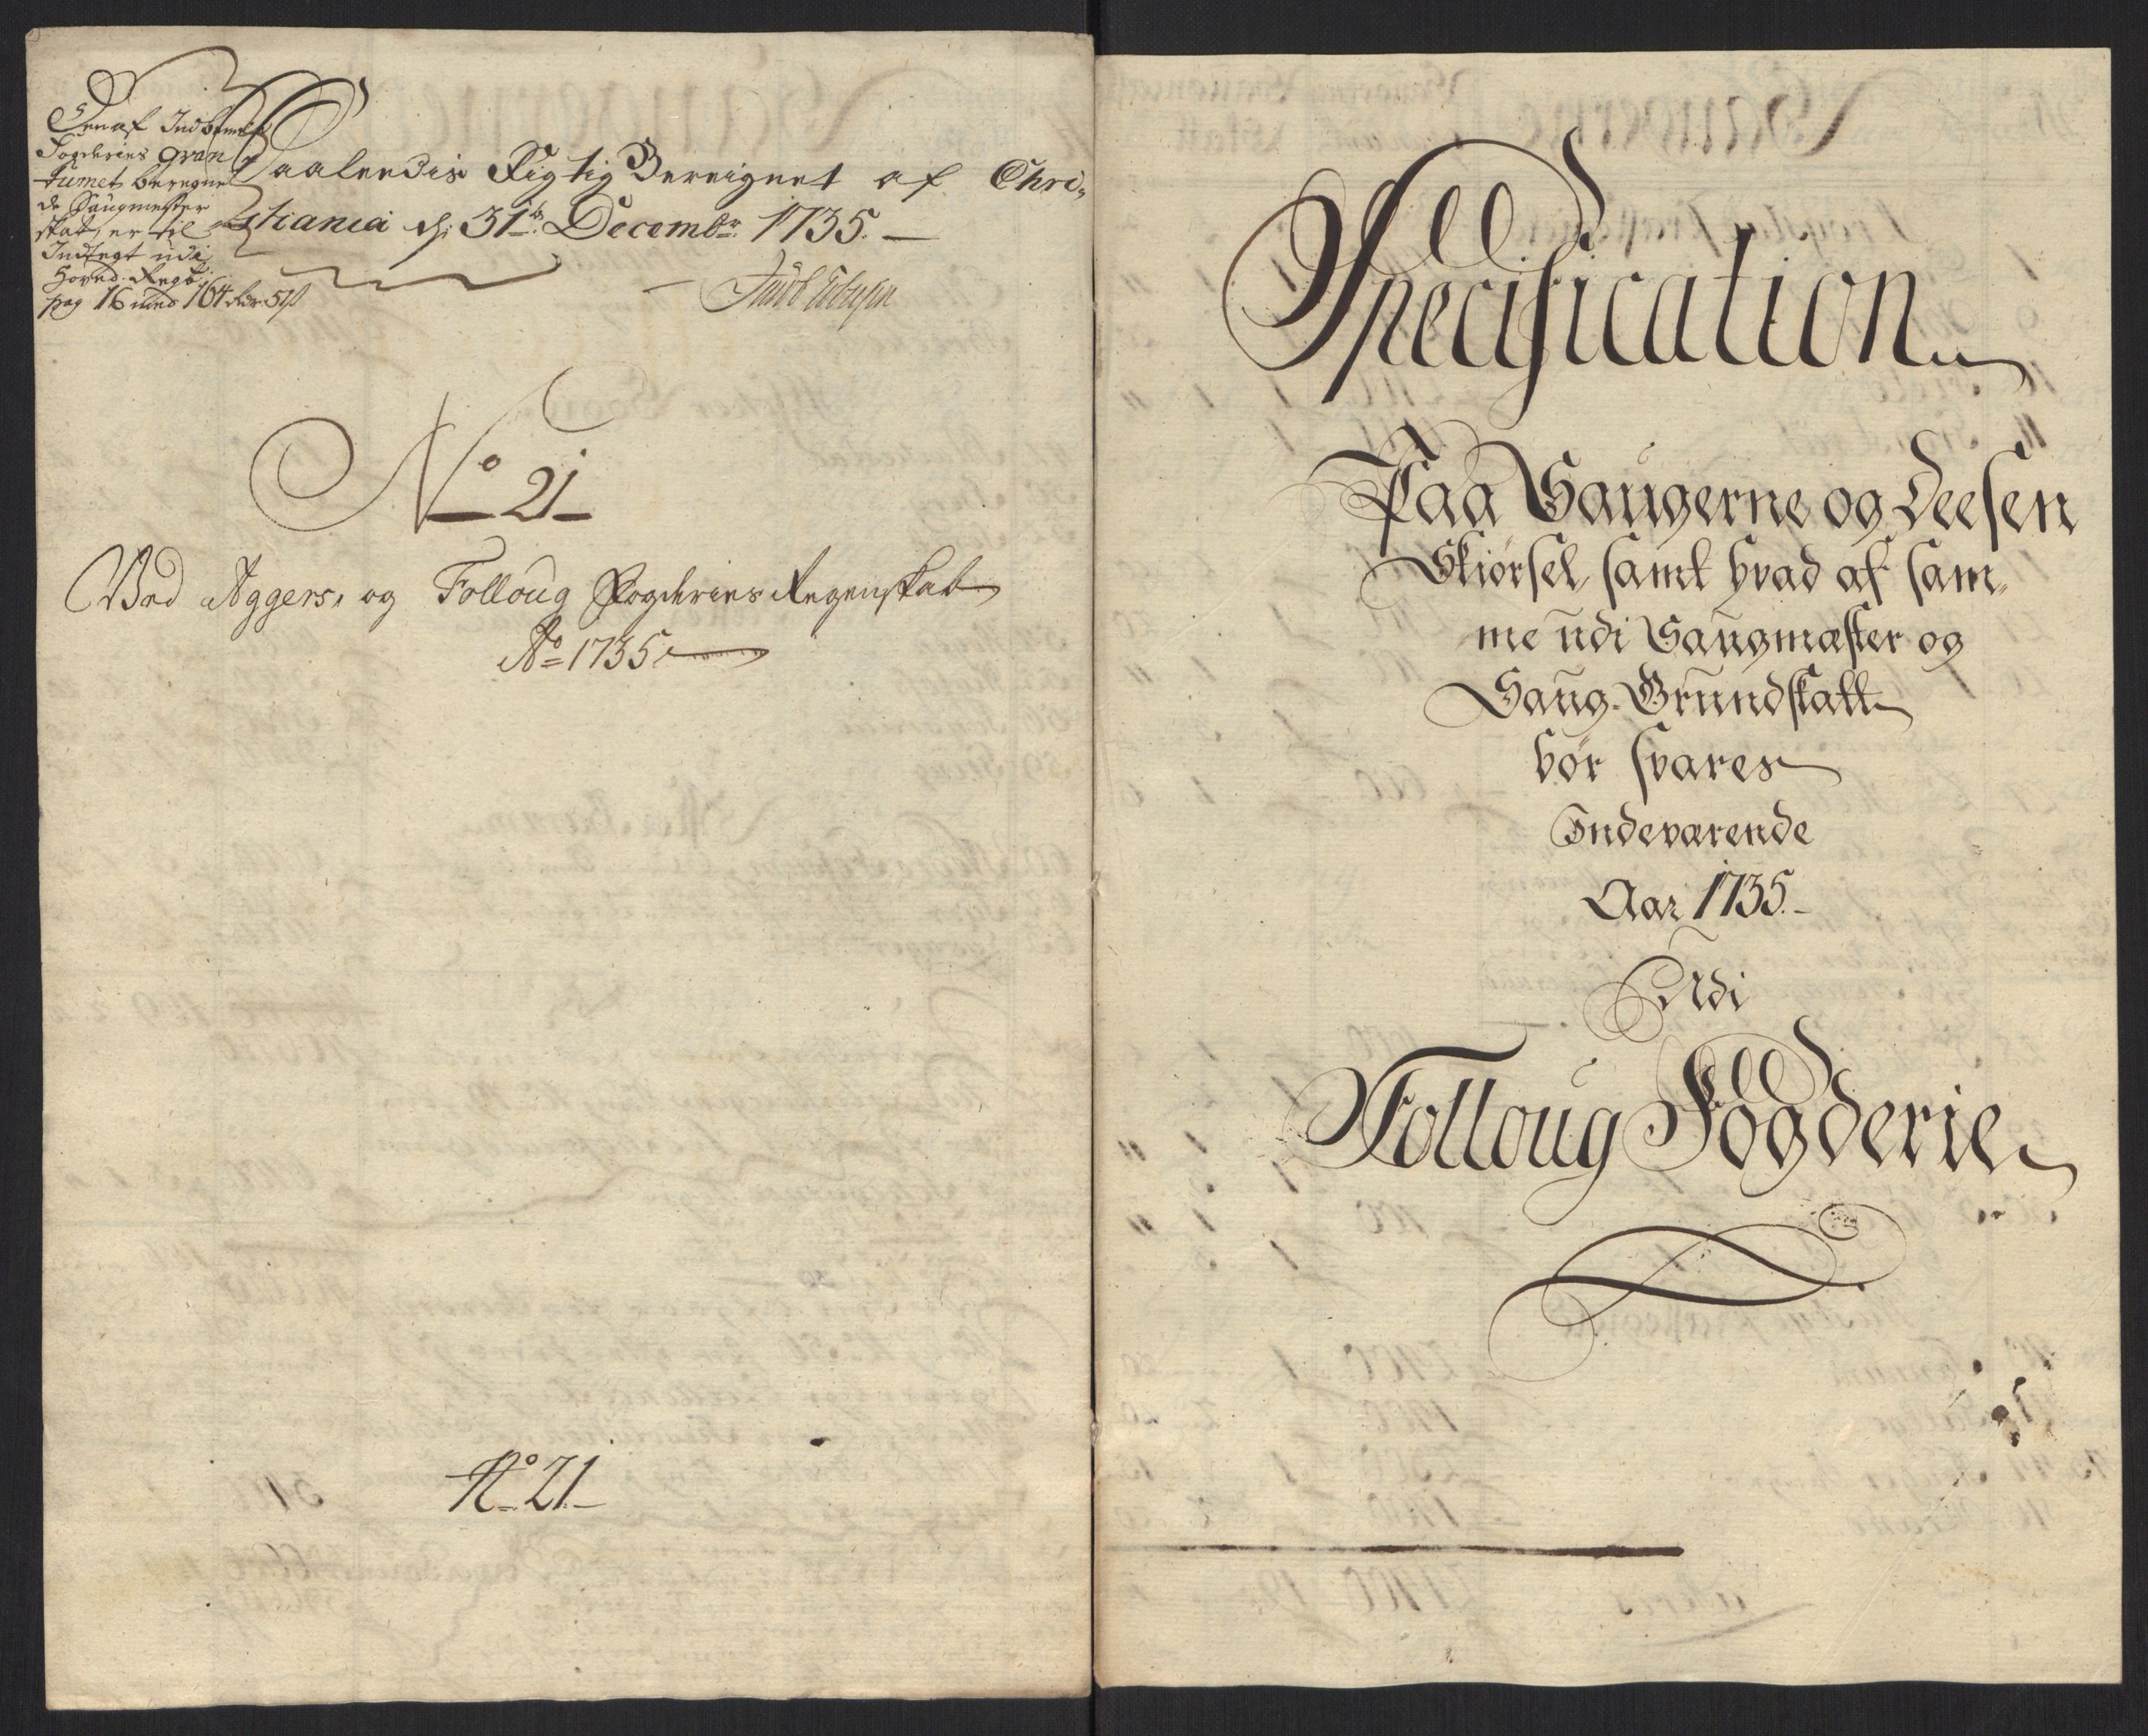 Den af Indbemte
Fogderies qvan
tumet beregne
de Saugmester
skat, er til
Indtegt udi
Hoved Regb:
pag 16 med 164 rdr 51 s
Saaledis Rigtig Bereignet af Chri„
stiania d: 31te Decembr: 1735. —
No 21
Ved Aggers, og Folloug Fogderies Regenskab
Ao 1735
No 21
Specification
Paa Saugerne og Deesen
Skiørsel, samt hvad af sam„
me udi Saugmæster og
Saug-Grundskatt
bør svares
Indeværende
Aar 1735.
Udi
Folloug Fogderie